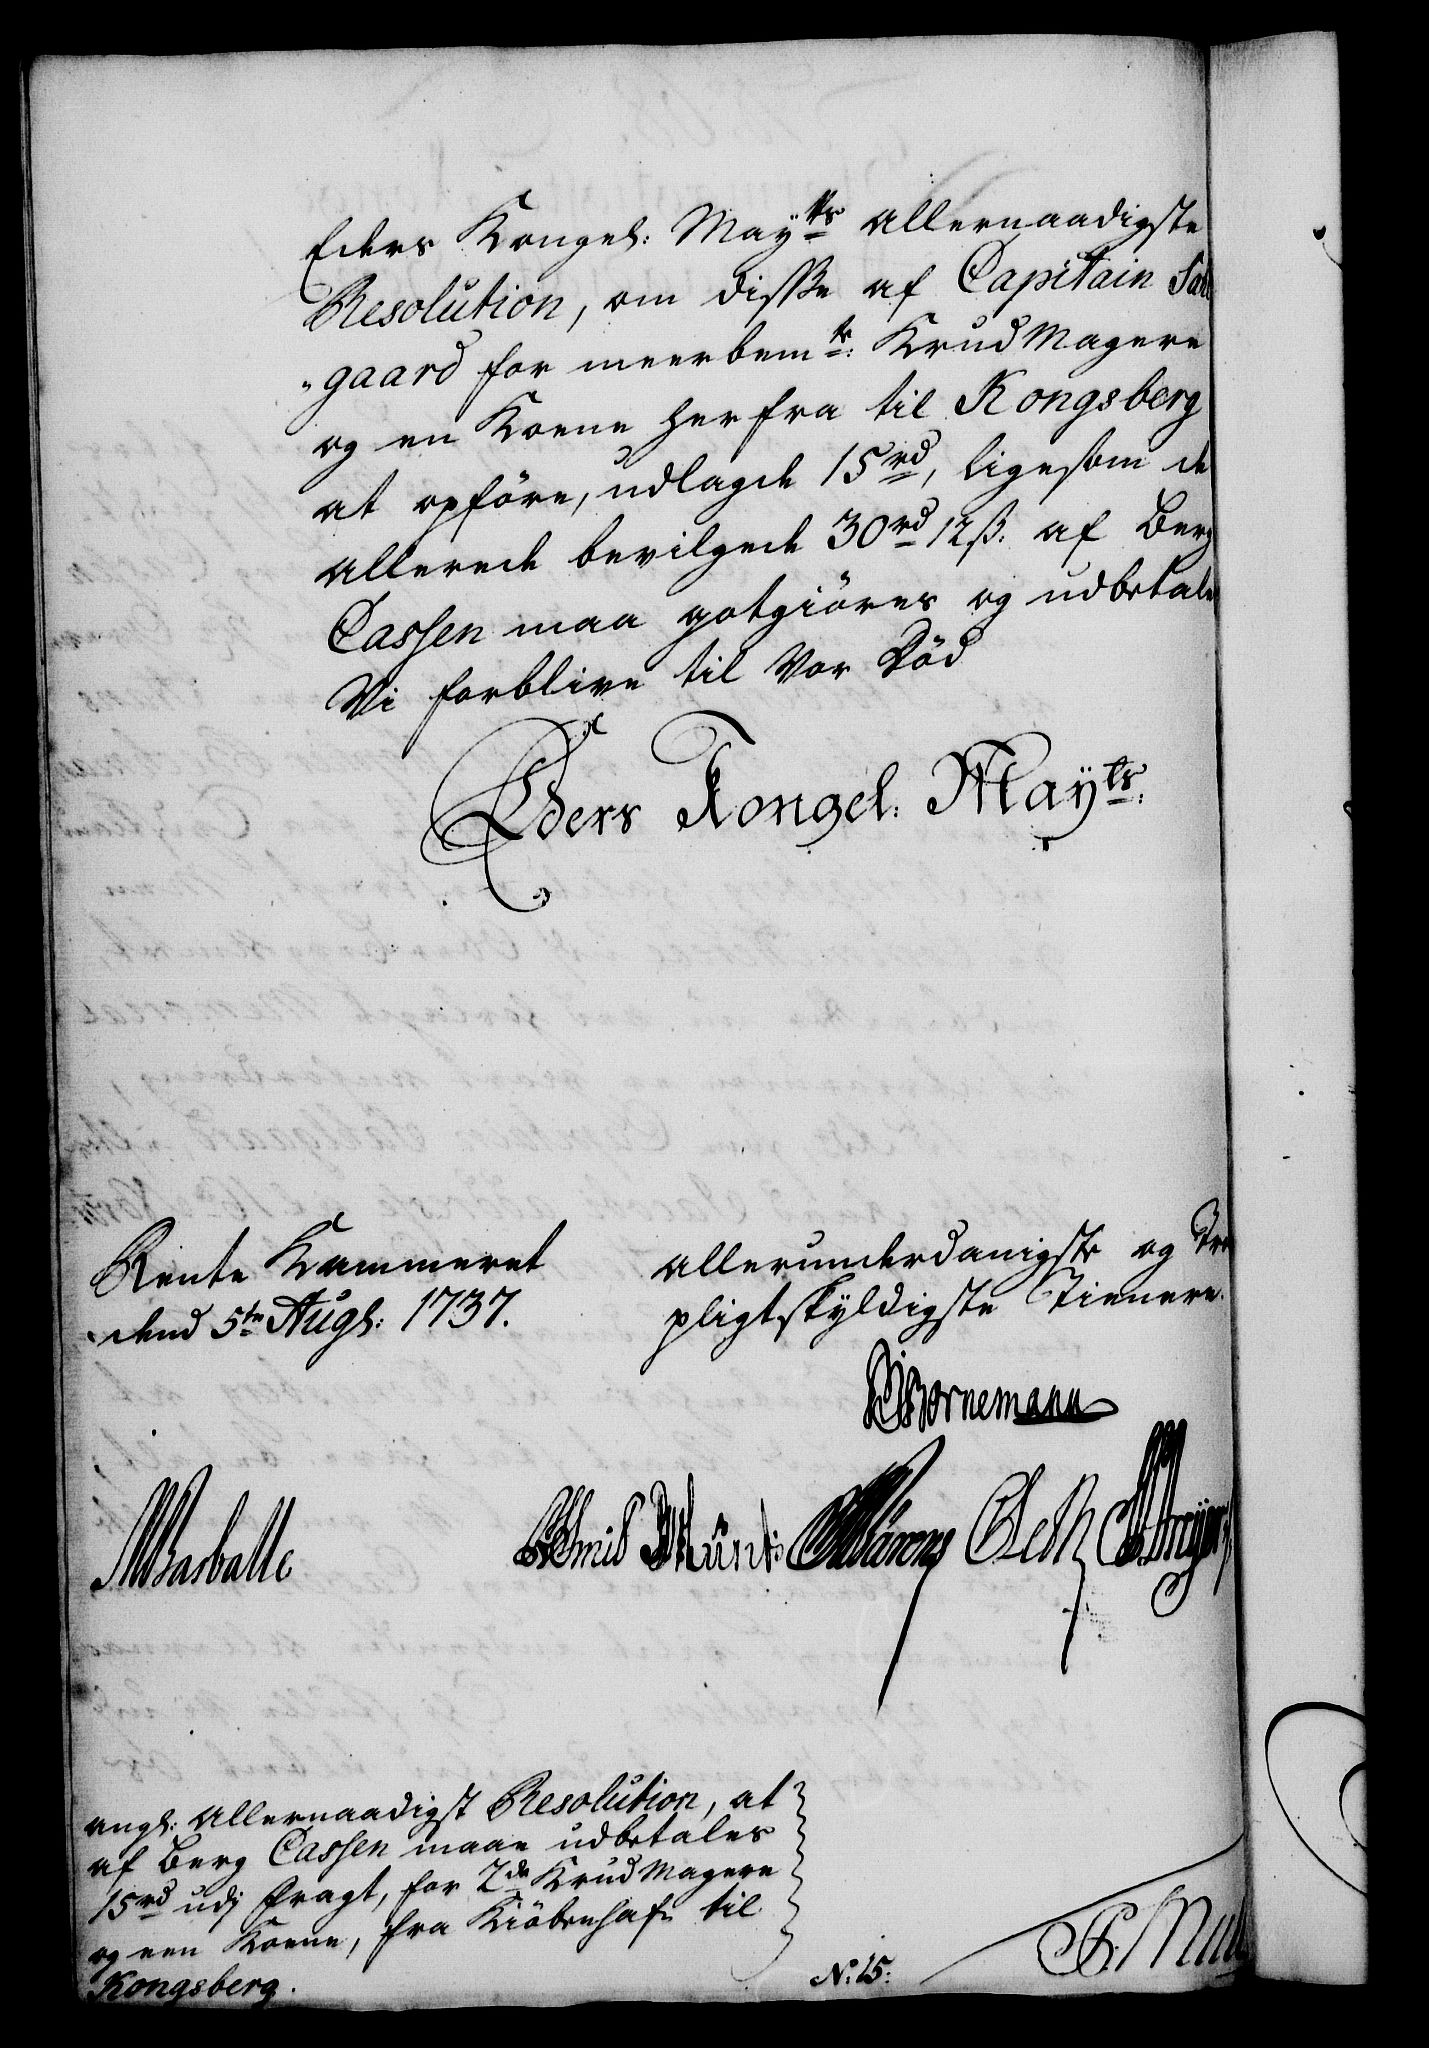 Eders Kongel: Mayts allernaadigste
Resolution, om disse af Capitain Sal
"gaard for meerbemte: KrudMagere
og en Koene herfra til Kongsberg
at opföre, udlagde 15rd, ligesom de
allerede bevilgede 30rd 12ß: af Berg
Cassen maa gotgiöres og udbetales
Vi forblive til Vor Död
Eders Kongel: Mayts:
Rente Kammeret
dend 5te Augs: 1737.
allerunderdanigste og Tro
pligtskyldigste Tienere.
Bornemann
Barballe
Smid Munt: Wärens Oeth
angl: allernaadigst Resolution, at
af Berg Cassen maae udbetales
15rd udj Fragt, for 2de KrudMagere
og een Koene, fra Kiöbenhafn til
Kongsberg.
No: 15: